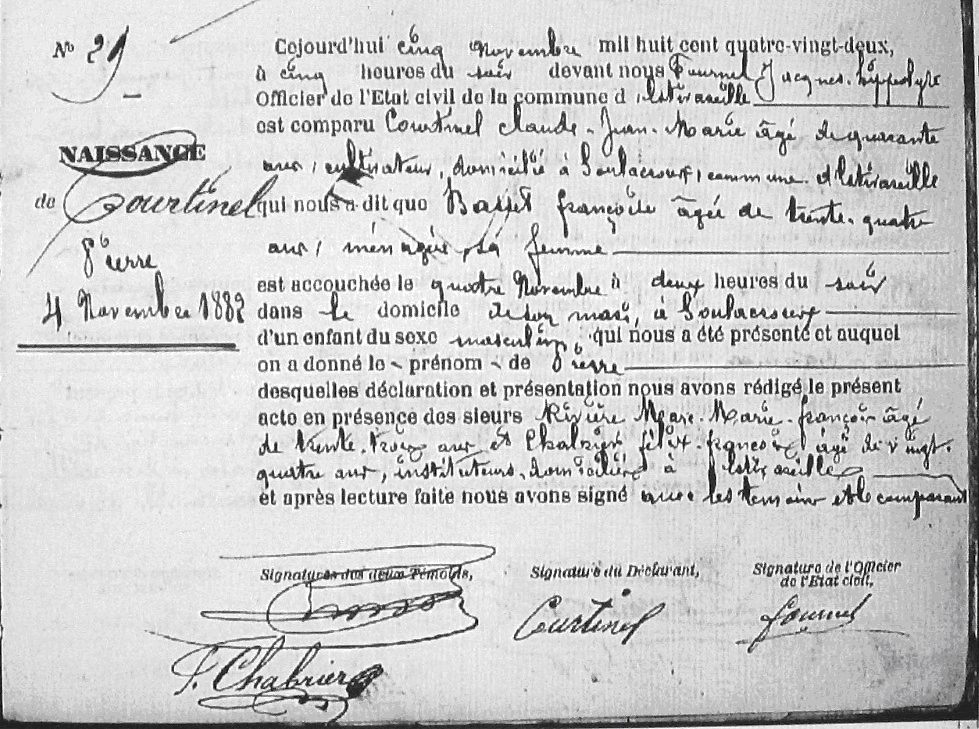 N° 29
NAISSANCE
de Courtinel
Pierre
4 Novembre 1882
Cejourd'hui cinq Novembre mil huit cent quatre-vingt-deux,
à cinq heures du soir devant nous Fournel Jacques-hippolyte
Officier de l'Etat civil de la commune d'Estivareille
est comparu Courtinel Claude-Jean-Marie âgé de quarante
ans, cultivateur, domicilié à commune d'Estivareille
qui nous a dit que Basset françoise âgée de trente-quatre
ans, ménagère, sa femme
est accouchée le quatre Novembre à deux heures du soir
dans le domicile de son mari, à
d'un enfant du sexe masculin qui nous a été présenté et auquel
on a donné le - prénom - de Pierre
desquelles déclaration et présentation nous avons rédigé le présent
acte en présence des sieurs Rivière Marc-Marie-françois âgé
de trente-trois ans et Chabrier félix-françois, âgé de vingt-
quatre ans, instituteurs, domiciliés à Estivareille
et après lecture faite nous avons signé avec les temoins et le comparant
Signatures des deux Témoins,
Signature du Déclarant,
Signature de l'Officier
de l'Etat civil,
Courtinel
Fournel
F. Chabrier